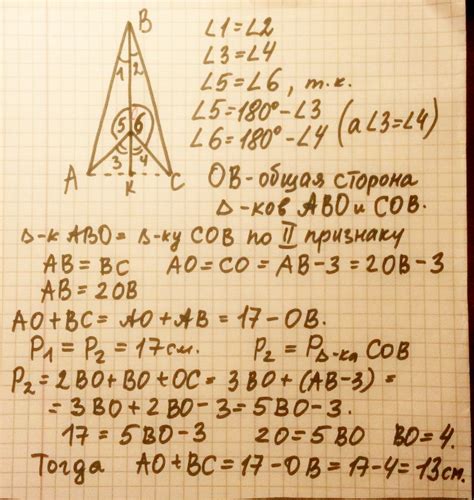 B
1 2
5 6
3 4
A K C
∠1=∠2
∠3=∠4
∠5=∠6, т.к.
∠5=180°-∠3
∠6=180°-∠4 (а ∠3=∠4)
OB-общая сторона
Δ-ков ABO и COB.
Δ-к ABO = Δ-ку COB по II признаку
AB = BC AO = CO = AB-3 = 2OB-3
AB = 2OB
AO+BC = AO+AB = 17-OB.
P₁ = P₂ = 17см. P₂ = P Δ-ка COB
P₂ = 2BO+BO+OC = 3BO+(AB-3) =
= 3BO+2BO-3=5BO-3.
17 = 5BO-3 20=5BO BO=4.
Тогда AO+BC=17-OB=17-4=13см.